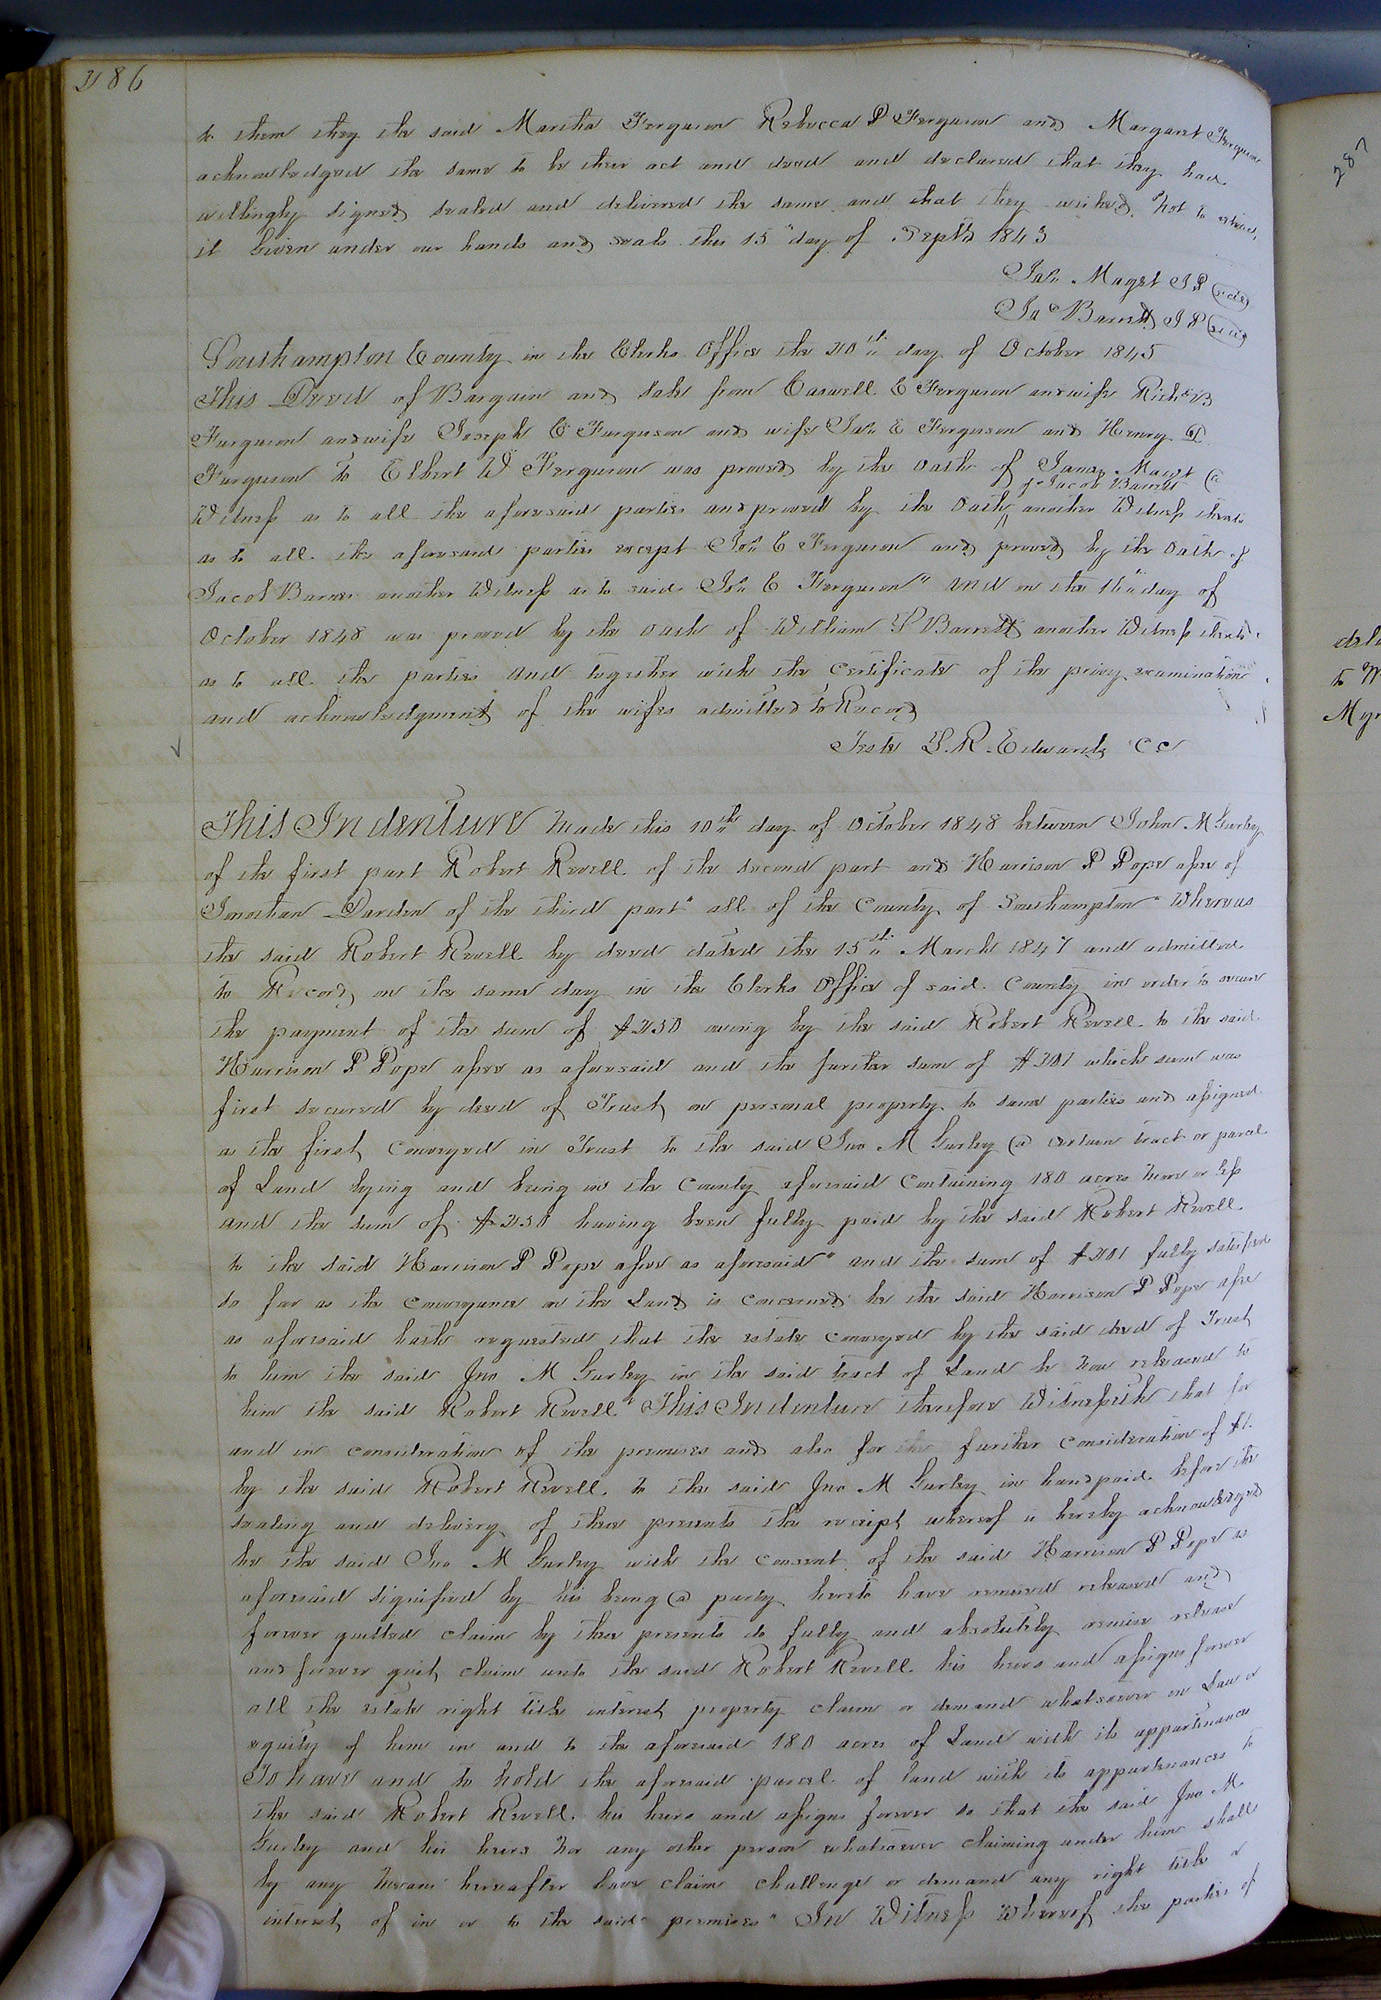 286
to them they the said Martha Ferguson Rebecca P Ferguson and Margaret Ferguson
acknowledged the same to be their act and deed and declared that they had
willingly signed sealed and delivered the same and that they wished not to retract
it Given under our hands and seals this 15" day of Septr 1845
Jas. Maget J P (seal)
Jac Barrett J P (seal)
Southampton County in the Clerks Office the 20th day of October 1845
This Deed of Bargain and Sale from Caswell E Ferguson and wife Richd B
Ferguson and wife Joseph E Ferguson and wife Jas. E Ferguson and Henry
Ferguson to Elbert W Ferguson was proved by the Oath of James Maget a
of Jacob Barrett
Witness as to all the aforesaid parties and proved by the Oath ^ another Witness thereto
as to all the aforesaid parties except Jos. E Ferguson and proved by the Oath of
Jacob Barnes another Witness as to said Jos. E Ferguson" and on the 16" day of
October 1848 was proved by the Oath of William S Barrett another Witness thereto
as to all the parties and together with the Certificate of the privy examination
and acknowledgment of the wifes admitted to Record
Teste L. R. Edwards CC
This Indenture Made this 10th day of October 1848 between John M Gurley
of the first part Robert Revell of the second part and Harrison P Pope assee of
Jonathan Darden of the third part" all of the County of Southampton" Whereas
the said Robert Revell by deed dated the 15th March 1847 and admitted
to Record on the same day in the Clerks Office of said County in order to secure
the payment of the sum of $250 owing by the said Robert Revell to the said
Harrison P Pope assee as aforesaid and the further sum of $201 which sum was
first secured by deed of Trust on personal property to same parties and assigned
as the first, Conveyed in Trust to the said Jno M Gurley a certain tract or parcel
of Land lying and being in the County aforesaid Containing 180 acres more or less
and the sum of $250 having been fully paid by the said Robert Revell
to the said Harrison P Pope assee as aforesaid" and the sum of $201 fully satisfied
so far as the Conveyance on the Land is concerned he the said Harrison P Pope assee
as aforesaid hath requested that the estate Conveyed by the said deed of Trust
to him the said Jno M Gurley in the said tract of Land be now released to
him the said Robert Revell" This Indenture therefore Witnesseth that for
and in consideration of the premises and also for the further Consideration of $1.
by the said Robert Revell to the said Jno M Gurley in hand paid before the
sealing and delivery of these presents the receipt whereof is hereby acknowledged
he the said Jno M Gurley with the Consent of the said Harrison P Pope as
aforesaid signified by his being a party hereto have remised released and
forever quitted claim by these presents do fully and absolutely remise release
and forever quit claim unto the said Robert Revell his heirs and assigns forever
all the estate right title interest property claim or demand whatsoever in Law or
equity of him in and to the aforesaid 180 acres of Land with its appurtenances
To have and to hold the aforesaid parcel of land with its appurtenances to
the said Robert Revell his heirs and assigns forever so that the said Jno M.
Gurley and his heirs Nor any other person whatsoever claiming under him shall
by any means hereafter have claim challenge or demand any right title or
interest of in or to the said premises" In Witness Whereof the parties of
287
to